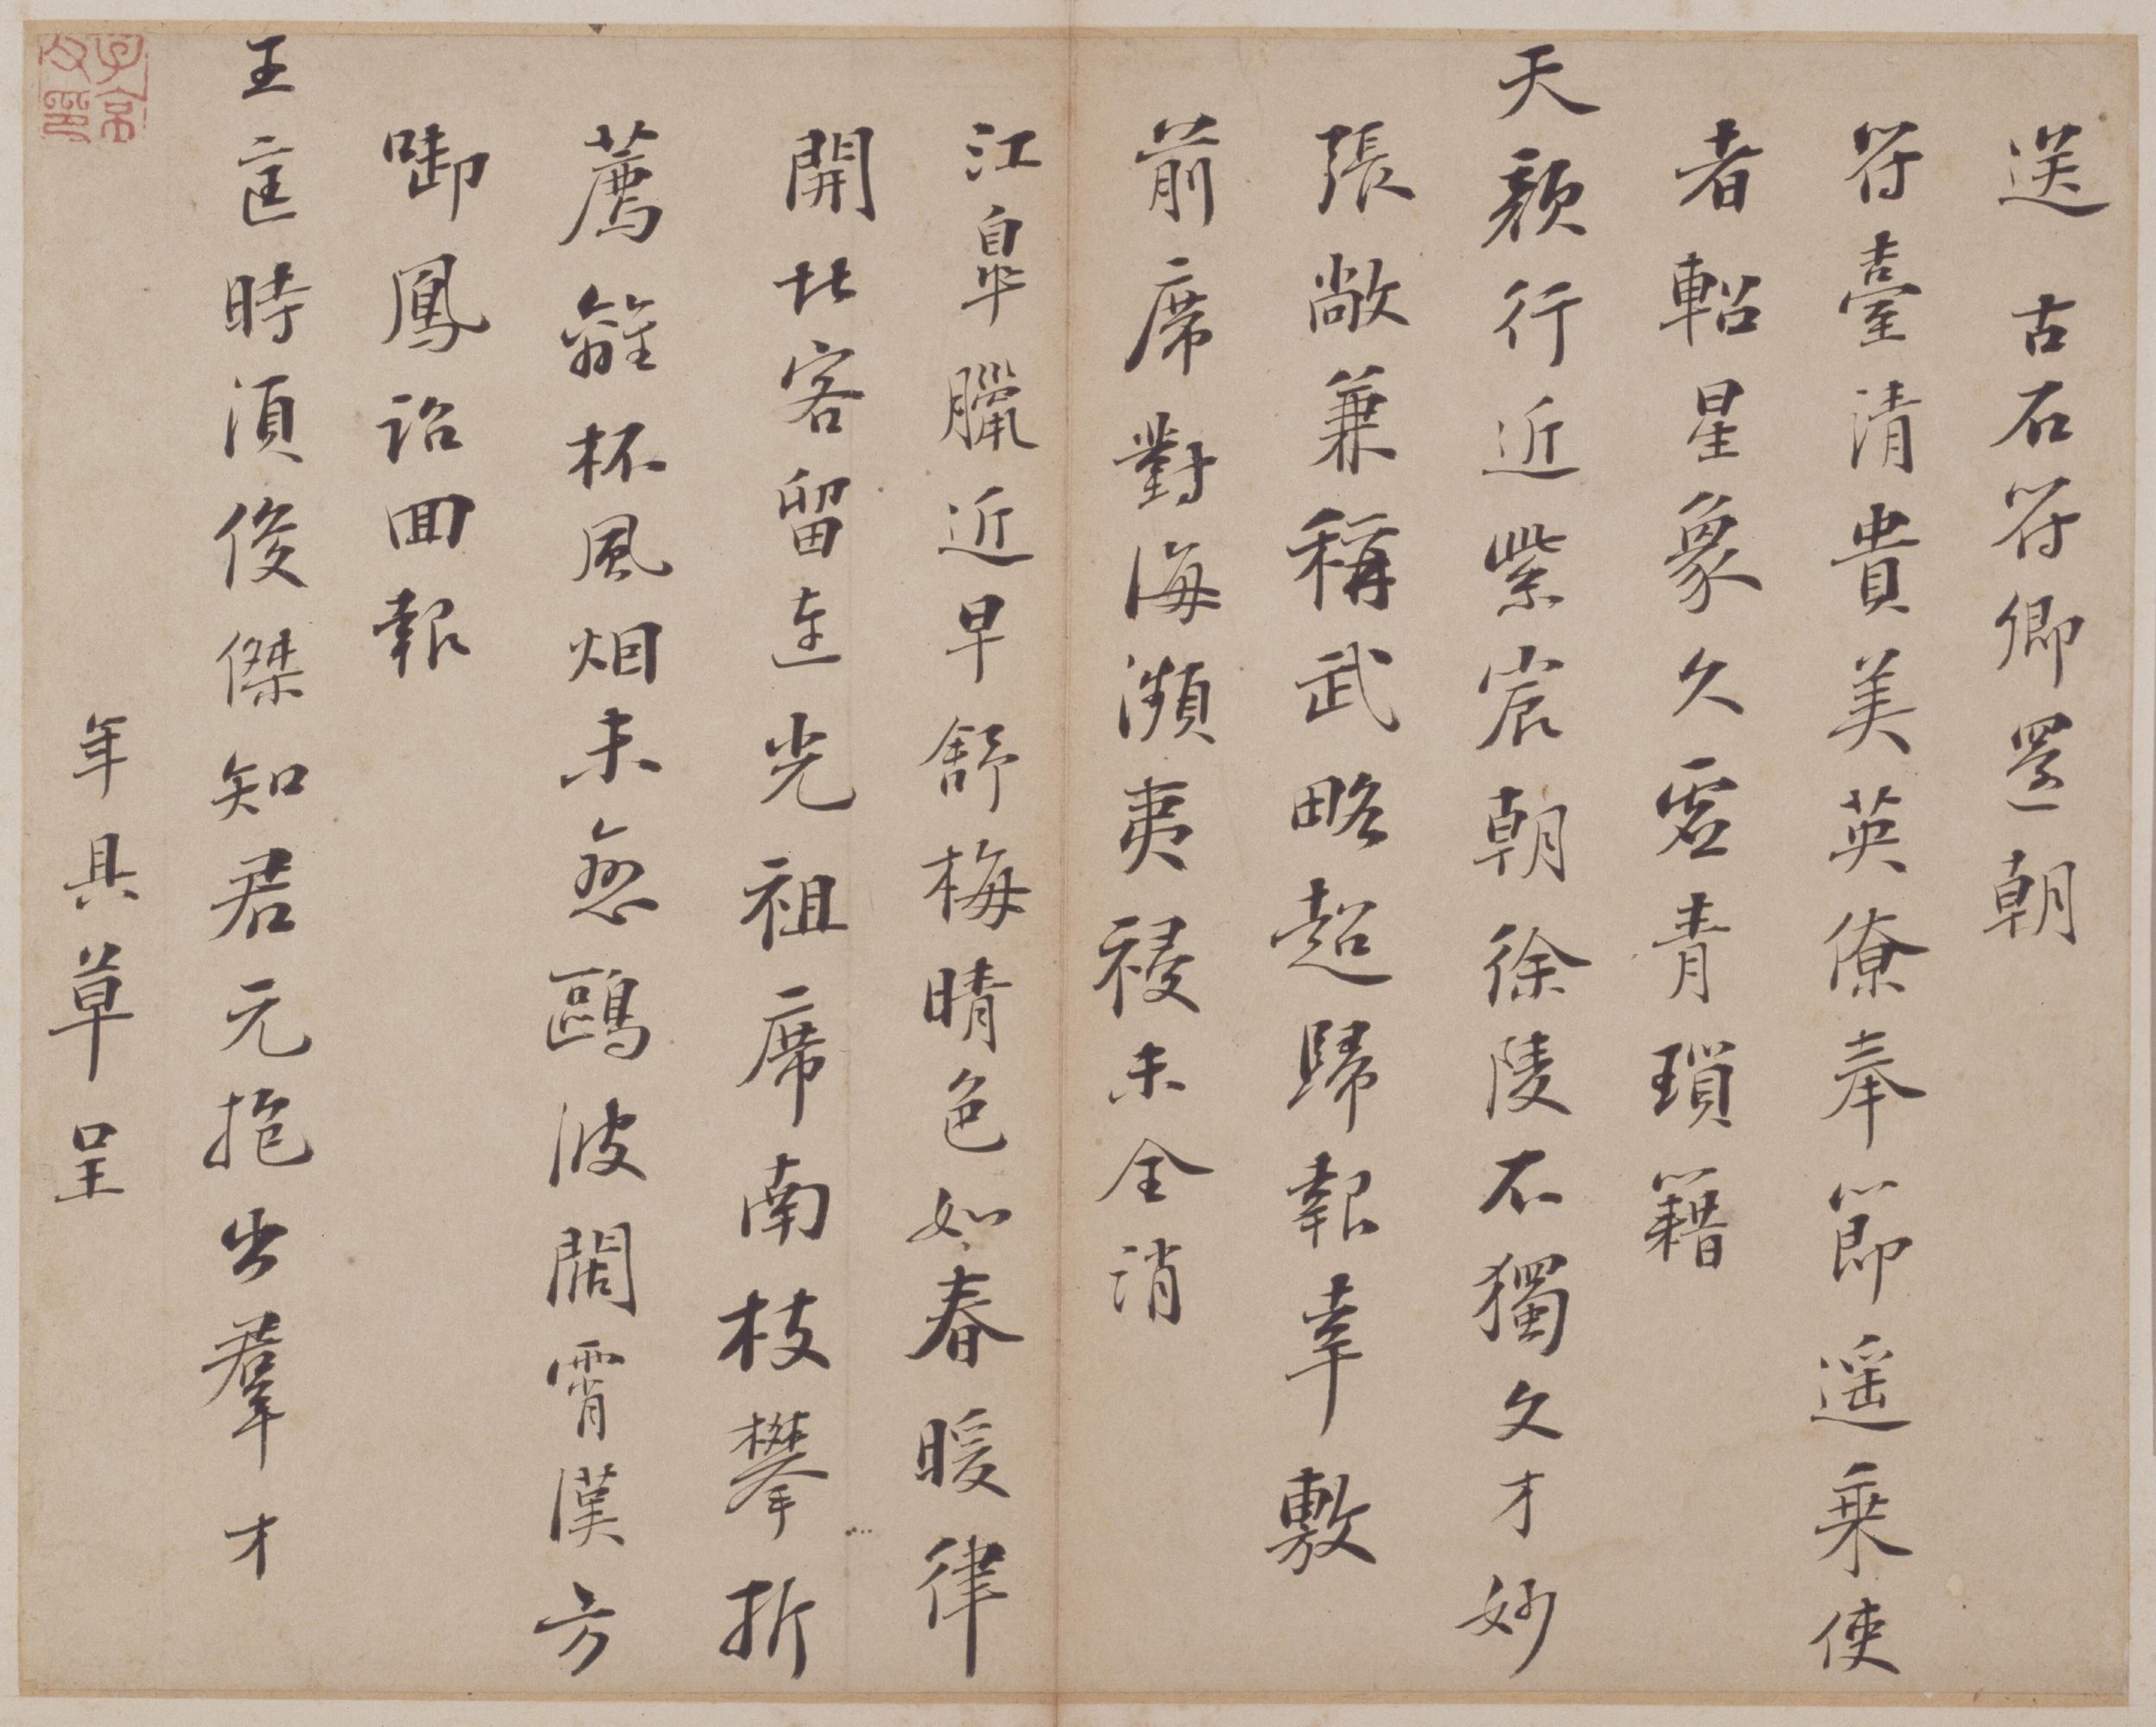 送古石符卿還朝
符臺清貴美英僚奉節遥乘使
者軺星象久虚青瑣籍
天顔行近紫宸朝徐陵不獨文才妙
張敞兼稱武略超歸報幸敷
前席對海瀕夷祲未全消
江皐臘近早舒梅晴色如春暖律
開北客留連光祖席南枝攀折
薦離杯風烟未忽鷗波闊霄漢方
啣鳳詔回報
王匡時須俊傑知君元抱出羣才
年具草呈